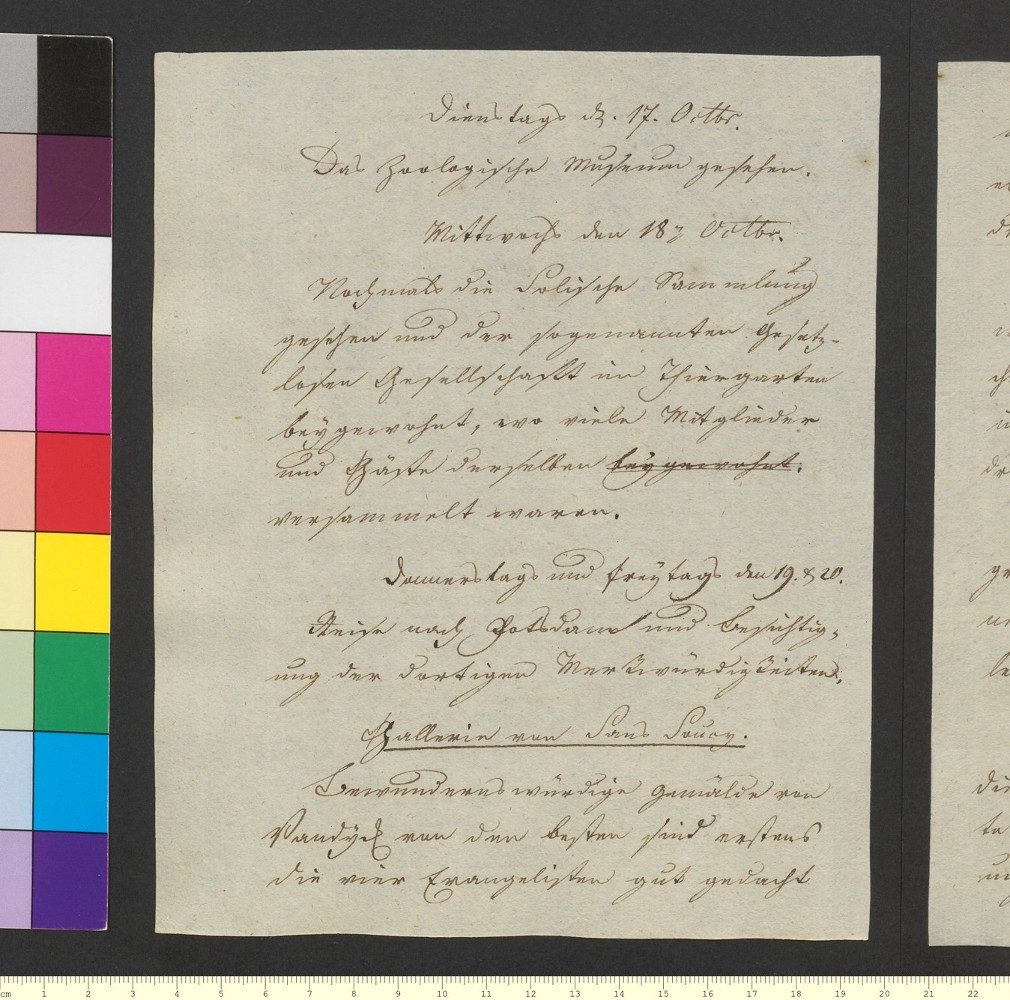 Dienstags d. 17. Octbr.
Das Zoologische Museum gesehen.
Mittwochs den 18. Octbr.
Nochmals die Solische Sammlung
gesehen und der sogenannten Gesetz-
losen Gesellschafft im Thiergarten
beygewohnt, wo viele Mitglieder
und Gäste derselben beygewohnt.
versammelt waren.
Donnerstags und Freytags den 19. & 20.
Reise nach Potsdam und Besichtig-
ung der dortigen Merkwürdigkeiten.
Gallerie von Sans Soucy.
Bewundernswürdige gemälde von
Vandyck von den besten sind erstens
die vier Evangelisten gut gedacht